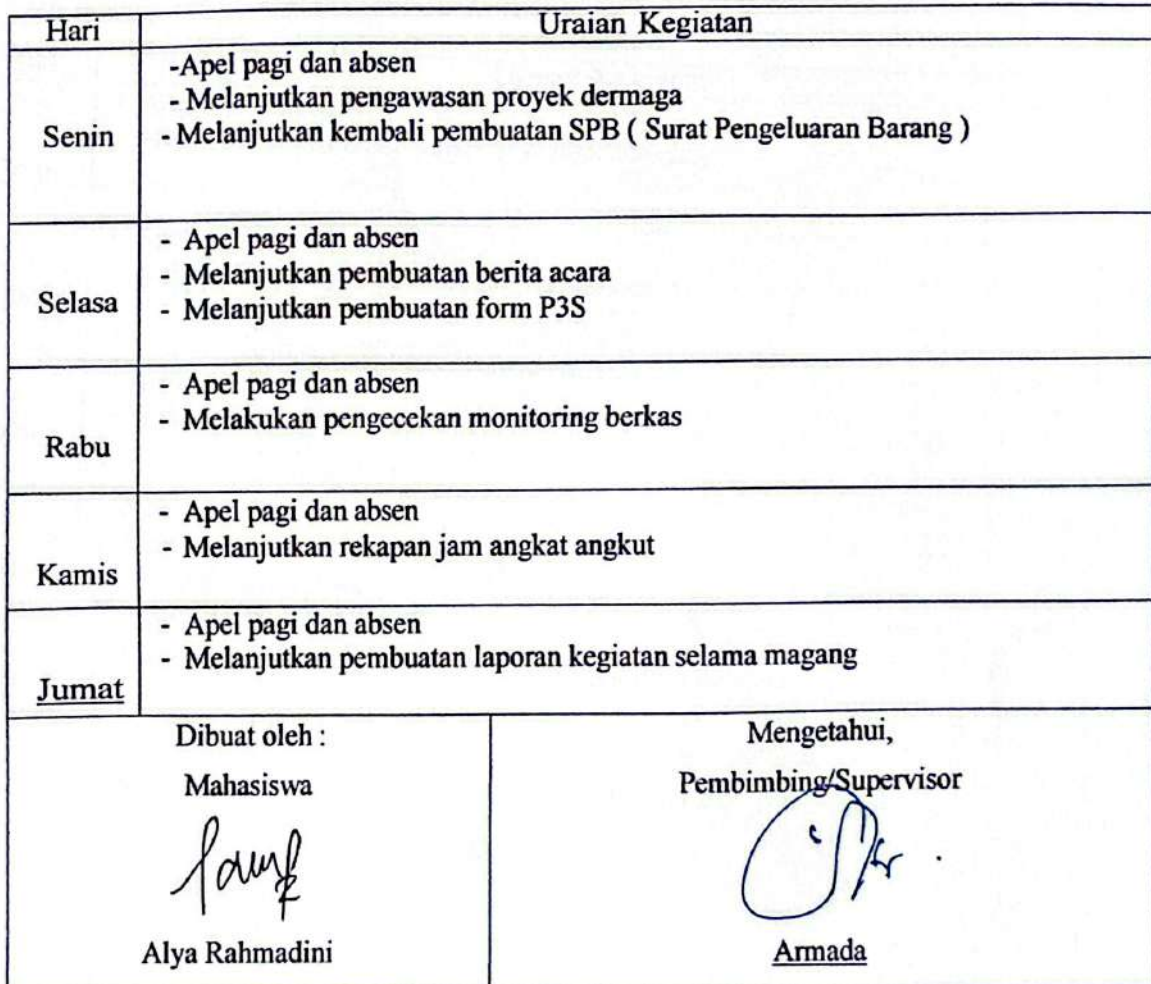 Hari Uraian Kegiatan
-Apel pagi dan absen
- Melanjutkan pengawasan proyek dermaga
Senin - Melanjutkan kembali pembuatan SPB ( Surat Pengeluaran Barang )
- Apel pagi dan absen
- Melanjutkan pembuatan berita acara
Selasa - Melanjutkan pembuatan form P3S
- Apel pagi dan absen
- Melakukan pengecekan monitoring berkas
Rabu
- Apel pagi dan absen
- Melanjutkan rekapan jam angkat angkut
Kamis
- Apel pagi dan absen
- Melanjutkan pembuatan laporan kegiatan selama magang
Jumat
Dibuat oleh :
Mahasiswa
Alya Rahmadini
Mengetahui,
Pembimbing/Supervisor
Armada